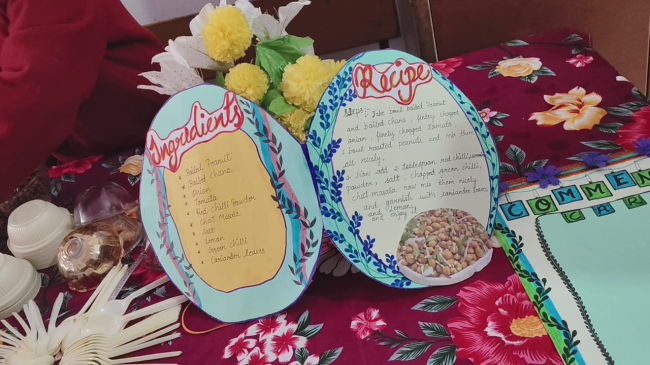 Ingredients
Boiled Peanut
Boiled Chana
Onion
Tomato
Red Chilli Powder
Chat Masala
Salt
Lemon
Green Chilli
Coriander leaves
Recipe
Steps:-
Take bowl boiled Peanut
and boiled chana, finley choped
onion, finley choped tomato,
bowl roasted peanuts and mix them
all nicely.
Now add 2 tablespoon red chilli
powder, salt chopped green chilli,
chat masala now mix them nicely
and garnish with coriander leaves
and lemon,
and enjoy it
COMMEN
CAR